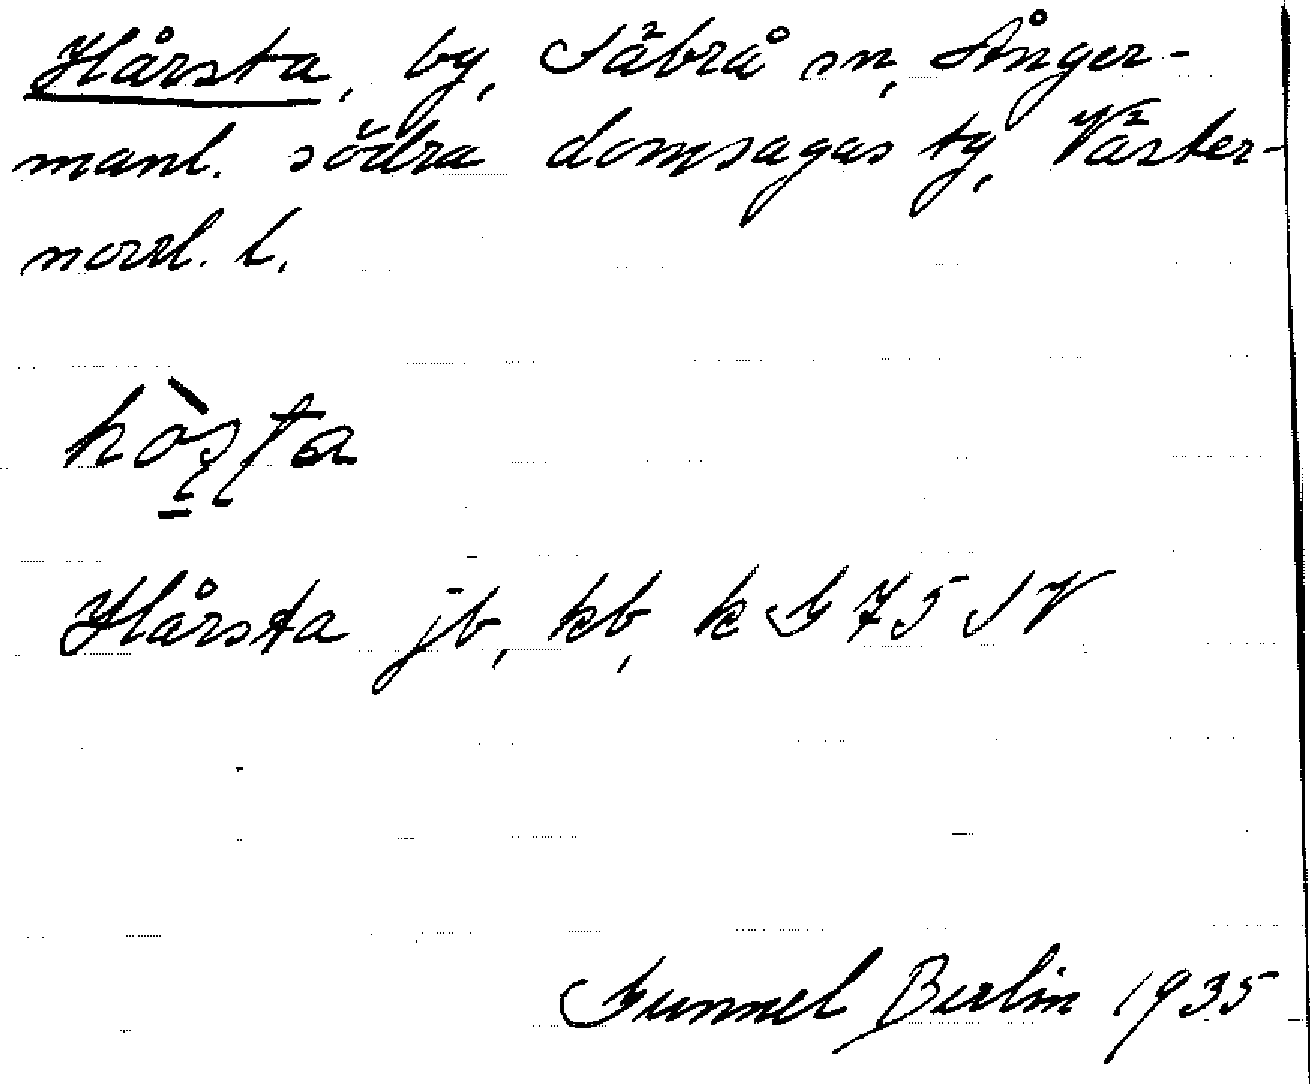 Hårsta, by, Säbrå sn, Ånger-
manl. södra domsagas tg, Väster-
norrl. l.
hòʂʈa
Hårsta jb, kb, k G 75 SV
Gunnel Berlin 1935